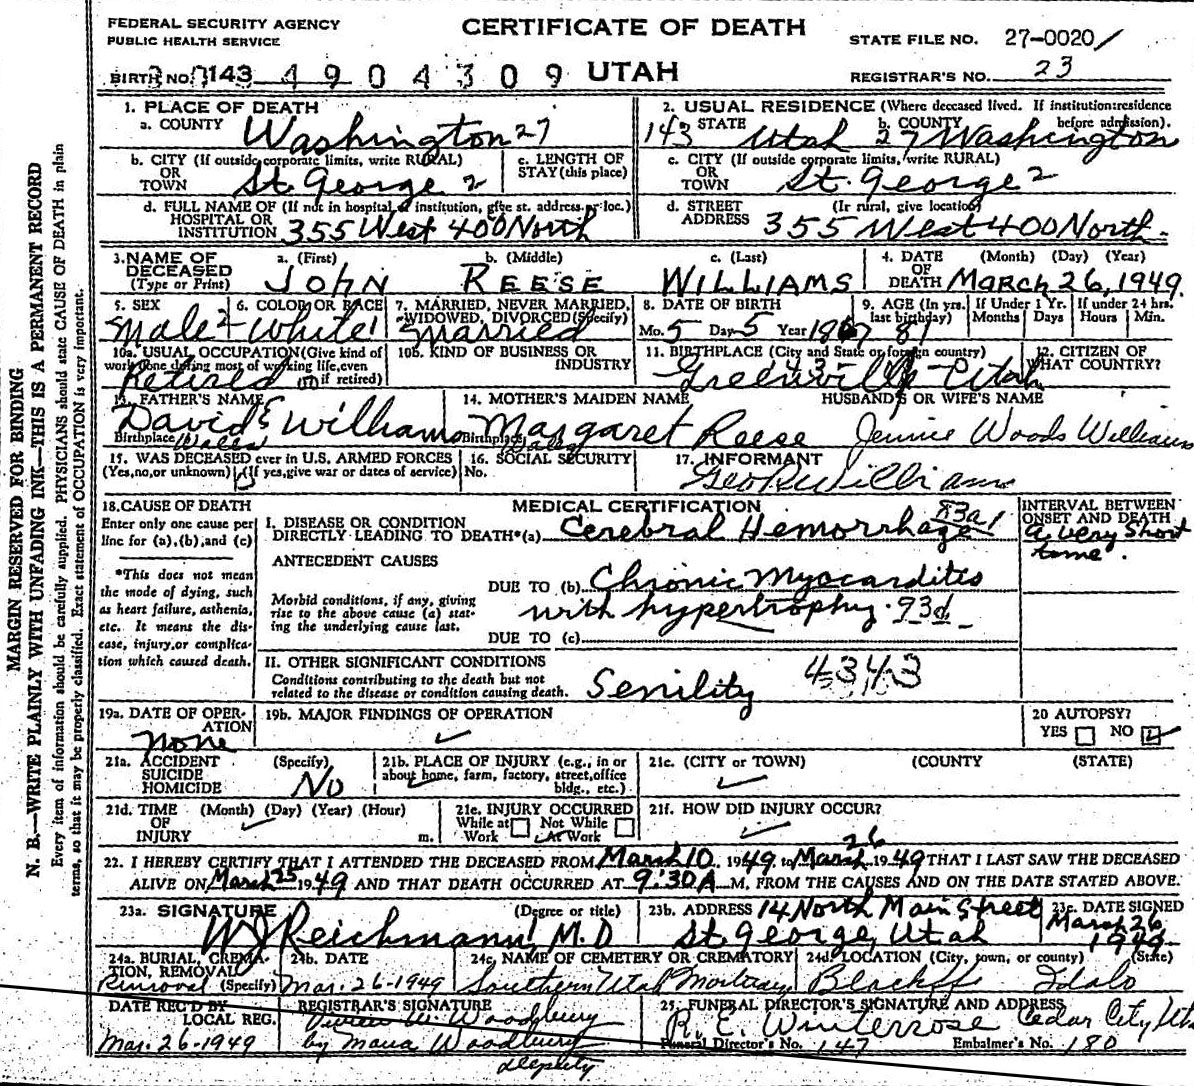 FEDERAL SECURITY AGENCY
PUBLIC HEALTH SERVICE
CERTIFICATE OF DEATH
STATE FILE NO. 27-0020/
BIRTH NO. 143 4904309 UTAH
REGISTRAR'S NO. 23
MARGIN RESERVED FOR BINDING
N. B.—WRITE PLAINLY WITH UNFADING INK—THIS IS A PERMANENT RECORD
Every item of information should be carefully supplied. PHYSICIANS should state CAUSE OF DEATH in plain
terms, so that it may be properly classified. Exact statement of OCCUPATION is very important.
1. PLACE OF DEATH
a. COUNTY Washington 27
2. USUAL RESIDENCE (Where deceased lived. If institution: residence
before admission).
143 a. STATE Utah b. COUNTY 27 Washington
b. CITY (If outside corporate limits, write RURAL)
OR
TOWN St. George 2
c. LENGTH OF
STAY (this place)
c. CITY (If outside corporate limits, write RURAL)
OR
TOWN St. George 2
d. FULL NAME OF (If not in hospital or institution, give st. address or loc.)
HOSPITAL OR
INSTITUTION 355 West 400 North
d. STREET (If rural, give location)
ADDRESS 355 West 400 North.
3. NAME OF
DECEASED
(Type or Print)
a. (First) JOHN
b. (Middle) REESE
c. (Last) WILLIAMS
4. DATE (Month) (Day) (Year)
OF
DEATH March 26, 1949.
5. SEX
Male 2
6. COLOR OR RACE
White 1
7. MARRIED, NEVER MARRIED,
WIDOWED, DIVORCED (Specify)
Married
8. DATE OF BIRTH
Mo. 5 Day 5 Year 1867
9. AGE (In yrs. last birthday) 81
If Under 1 Yr. Months Days
If under 24 hrs. Hours Min.
10a. USUAL OCCUPATION (Give kind of
work done during most of working life, even
if retired)
Retired
10b. KIND OF BUSINESS OR
INDUSTRY
11. BIRTHPLACE (City and State or foreign country)
143
Greenville - Utah
12. CITIZEN OF
WHAT COUNTRY?
13. FATHER'S NAME
David E Williams
Birthplace Wales
14. MOTHER'S MAIDEN NAME
Margaret Reese
Birthplace Wales
HUSBAND'S OR WIFE'S NAME
Jennie Woods Williams
15. WAS DECEASED ever in U.S. ARMED FORCES
(Yes, no, or unknown) (If yes, give war or dates of service)
16. SOCIAL SECURITY
No.
17. INFORMANT
Geo R Williams
18. CAUSE OF DEATH
Enter only one cause per
line for (a), (b), and (c)
*This does not mean
the mode of dying, such
as heart failure, asthenia,
etc. It means the dis-
ease, injury, or complica-
tion which caused death.
MEDICAL CERTIFICATION
83a1
I. DISEASE OR CONDITION
DIRECTLY LEADING TO DEATH*(a) Cerebral Hemorrhage
INTERVAL BETWEEN
ONSET AND DEATH
a very short
time.
ANTECEDENT CAUSES
Morbid conditions, if any, giving
rise to the above cause (a) stat-
ing the underlying cause last.
DUE TO (b) Chronic Myocarditis
with hypertrophy. 93d.
DUE TO (c)
II. OTHER SIGNIFICANT CONDITIONS
Conditions contributing to the death but not
related to the disease or condition causing death. Senility 4343
19a. DATE OF OPER-
ATION
none
19b. MAJOR FINDINGS OF OPERATION
20 AUTOPSY?
YES NO
21a. ACCIDENT (Specify)
SUICIDE
HOMICIDE No
21b. PLACE OF INJURY (e.g., in or
about home, farm, factory, street, office
bldg., etc.)
21c. (CITY or TOWN) (COUNTY) (STATE)
21d. TIME (Month) (Day) (Year) (Hour)
OF
INJURY m.
21e. INJURY OCCURRED
While at Work Not While At Work
21f. HOW DID INJURY OCCUR?
22. I HEREBY CERTIFY THAT I ATTENDED THE DECEASED FROM March 10, 1949 to March 26 1949 THAT I LAST SAW THE DECEASED
ALIVE ON March 25 1949 AND THAT DEATH OCCURRED AT 9:30 A M. FROM THE CAUSES AND ON THE DATE STATED ABOVE.
23a. SIGNATURE (Degree or title)
W J Reichmann, M.D
23b. ADDRESS 14 North Main Street
St George, Utah
23c. DATE SIGNED
March 26
1949
24a. BURIAL, CREMA-
TION, REMOVAL
Removal (Specify)
24b. DATE
Mar. 26-1949
24c. NAME OF CEMETERY OR CREMATORY
Southern Utah Mortuary
24d. LOCATION (City, town, or county) (State)
Blackff Idaho
DATE REC'D BY
LOCAL REG.
Mar. 26-1949
REGISTRAR'S SIGNATURE
Woodbury
by Woodbury
deputy
25. FUNERAL DIRECTOR'S SIGNATURE AND ADDRESS
R. E. Winterrose Cedar City Utah
Funeral Director's No. 147 Embalmer's No. 180